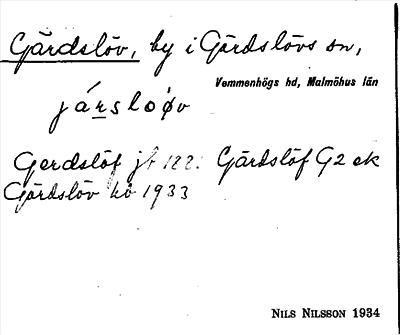 Gärdslöv, by i Gärdslövs sn,
Vemmenhögs hd, Malmöhus län
jársloǿv
Gerdslöf jb 122: Gärdslöf G2 ek
Gärdslöv kb 1933
NILS NILSSON 1934